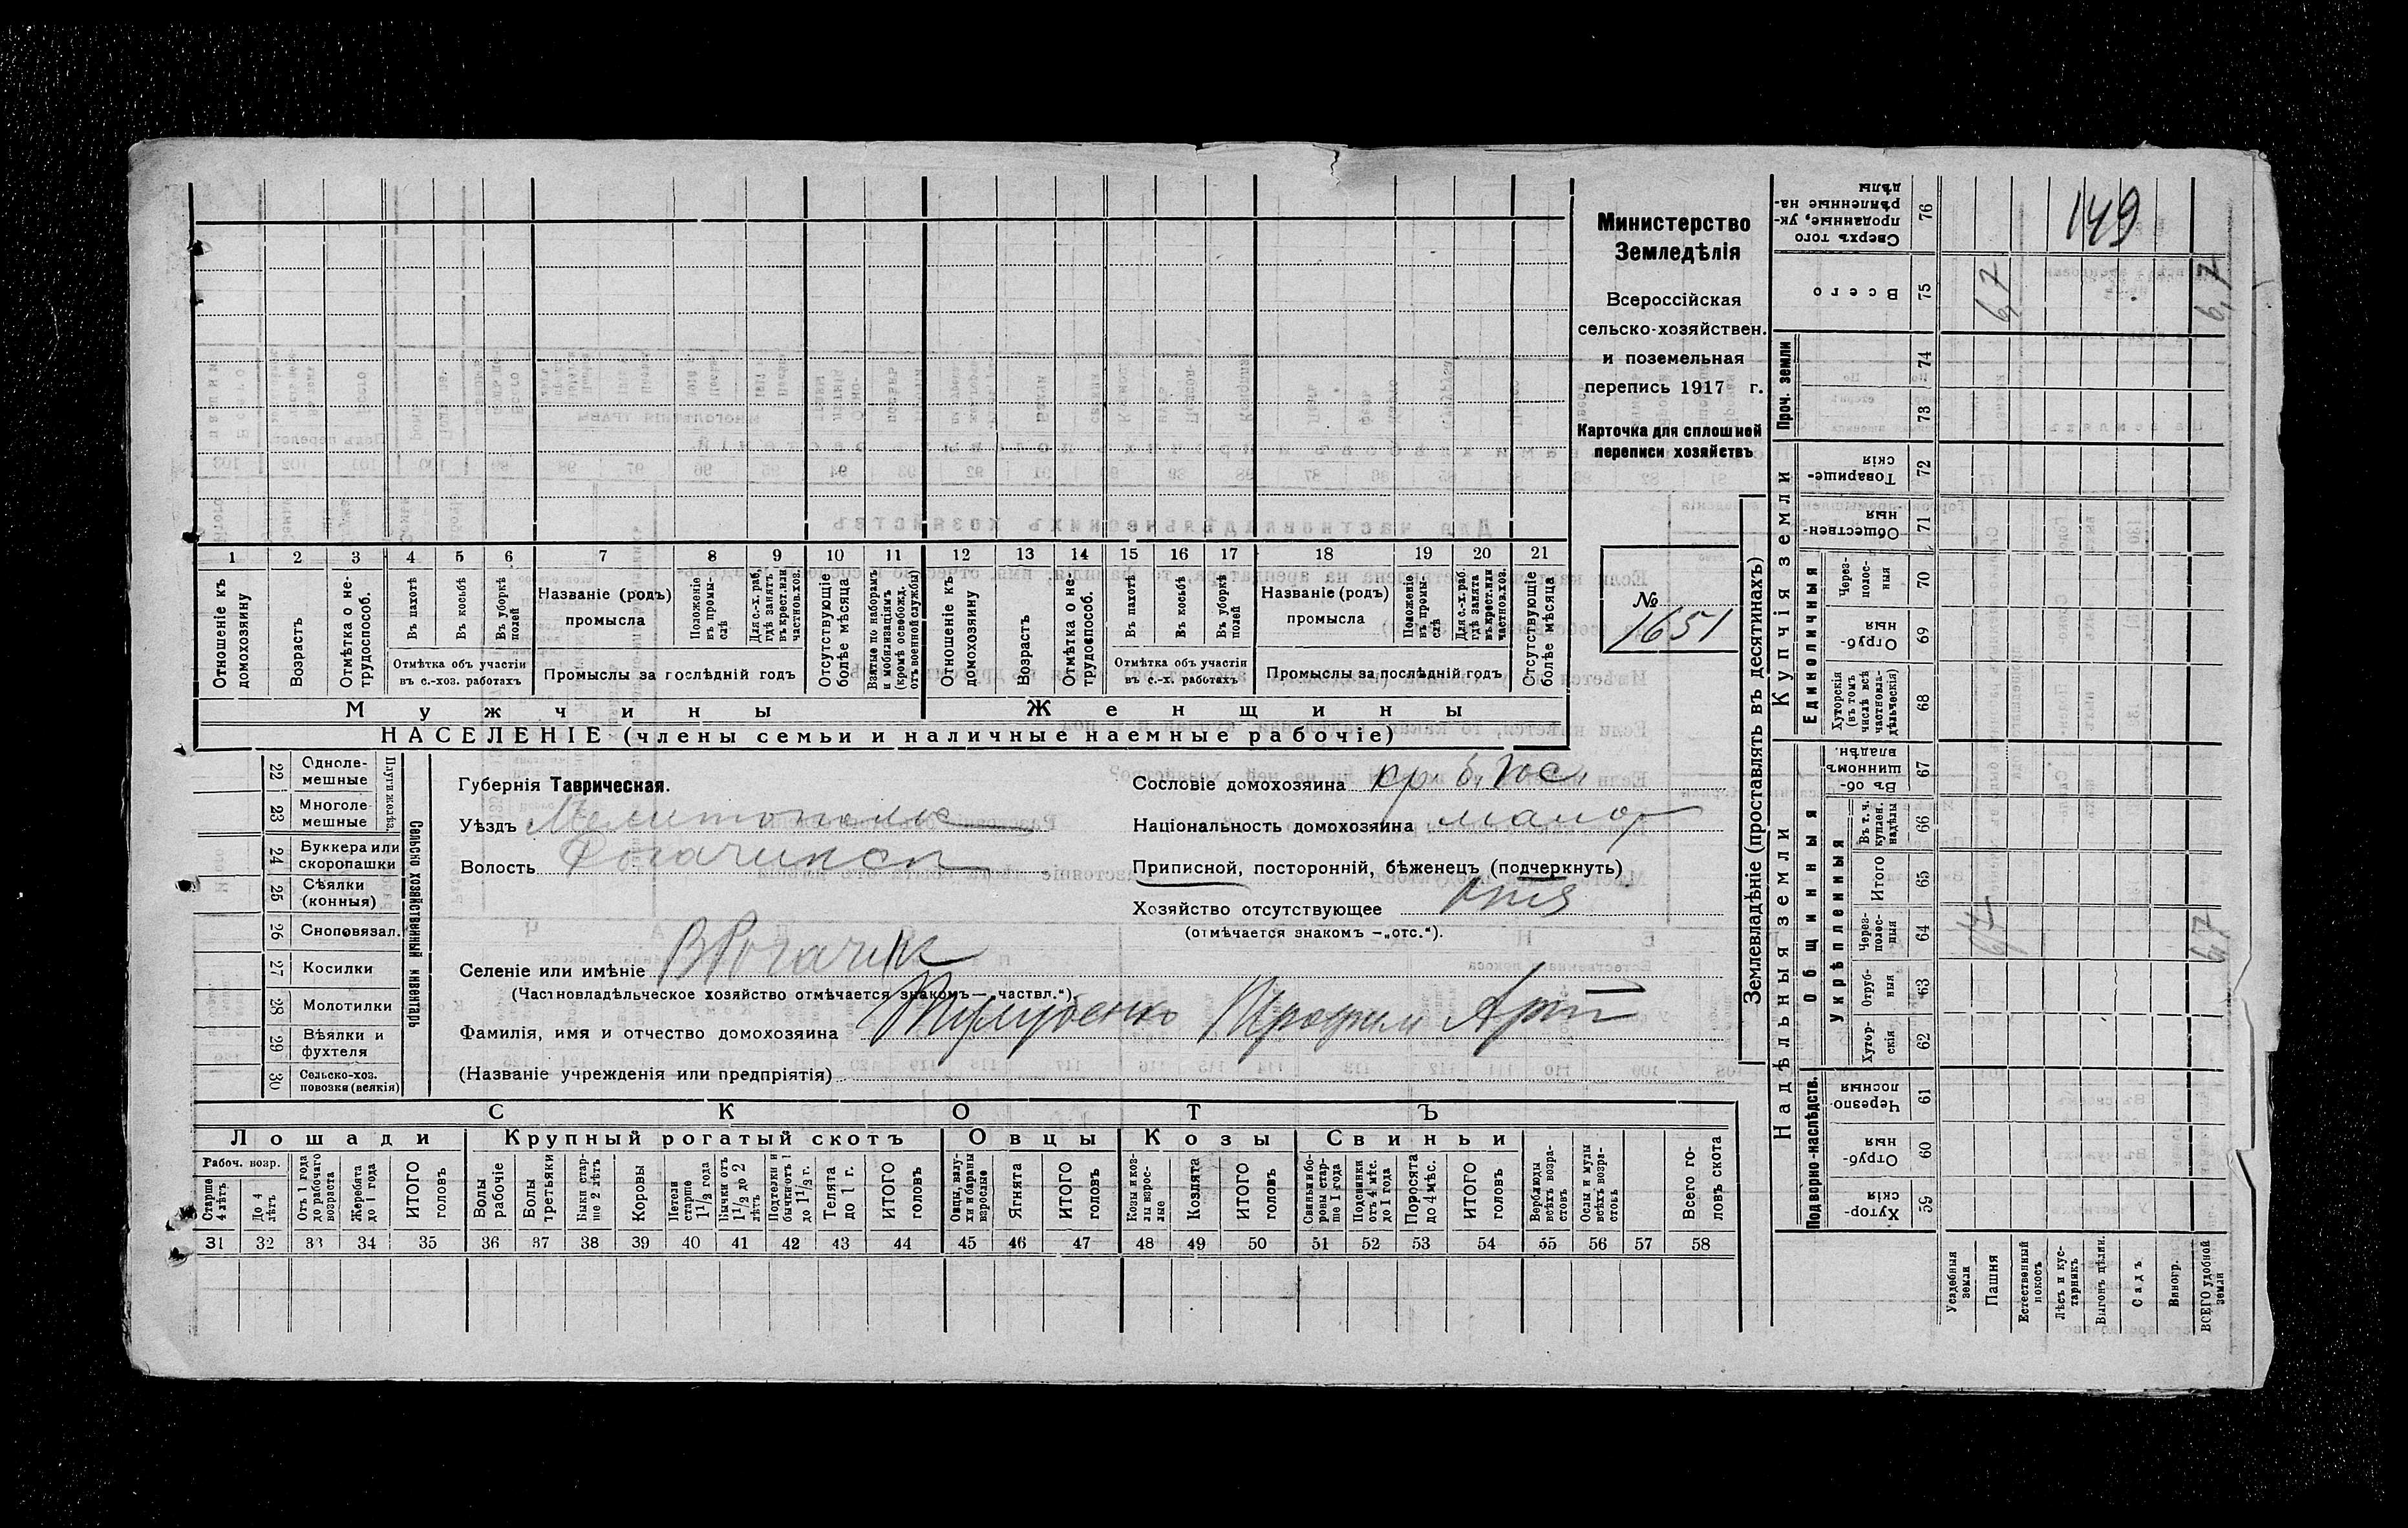 1 2 3 4 5 6 7 8 9 10 11 12 13 14 15 16 17 18 19 20 21
Отношеніе къ домохозяину
Возрастъ
Отмѣтка о не-
трудоспособ.
Въ пахотѣ
Въ косьбѣ
Въ уборкѣ полей
Отмѣтка объ участіи
въ с.-хоз. работахъ
Названіе (родъ)
промысла
Положеніе въ промы-
слѣ
Для с.-х. раб. гдѣ занятъ въ крест. или частнов. хоз.
Промыслы за послѣдній годъ
Отсутствующіе болѣе мѣсяца
Взятые по наборамъ и мобилизаціямъ (кромѣ освобожд. отъ военной службы)
Отношеніе къ домохозяину
Возрастъ
Отмѣтка о не-
трудоспособ.
Въ пахотѣ
Въ косьбѣ
Въ уборкѣ полей
Отмѣтка объ участіи
въ с.-х. работахъ
Названіе (родъ)
промысла
Положеніе въ промы-
слѣ
Для с.-х. раб. гдѣ занята въ крест. или частнов. хоз.
Промыслы за послѣдній годъ
Отсутствующіе болѣе мѣсяца
Мужчины
Женщины
НАСЕЛЕНІЕ (члены семьи и наличные наемные рабочіе)
Министерство
Земледѣлія
Всероссійская
сельско-хозяйствен.
и поземельная
перепись 1917 г.
Карточка для сплошной
переписи хозяйствъ
№
1651
22 Одноле-
мешные
23 Многоле-
мешные
Плуги желѣз.
24 Буккера или
скоропашки
25 Сѣялки
(конныя)
26 Сноповязал.
27 Косилки
28 Молотилки
29 Вѣялки и
фухтеля
30 Сельско-хоз.
повозки (всякія)
Сельско хозяйственный инвентарь
Губернія Таврическая.
Уѣздъ Мелитопольс
Волость Рогачинск
Селеніе или имѣніе ВРогачик
(Частновладѣльческое хозяйство отмѣчается знакомъ — „частвл.“)
Фамилія, имя и отчество домохозяина Трофим Арт
(Названіе учрежденія или предпріятія)
Сословіе домохозяина кр. б. гос.
Національность домохозяина малор
Приписной, посторонній, бѣженецъ (подчеркнуть)
Хозяйство отсутствующее
(отмѣчается знакомъ — „отс.“).
СКОТЪ
Лошади
Крупный рогатый скотъ
Овцы
Козы
Свиньи
Рабоч. возр.
Старше 4 лѣтъ
До 4 лѣтъ
Отъ 1 года до рабочаго возраста
Жеребята до 1 года
ИТОГО головъ
Волы рабочіе
Волы третьяки
Быки стар-
ше 2 лѣтъ
Коровы
Нетели старше 1 1/2 года
Бычки отъ 1 1/2 до 2 лѣтъ
Подтелки и бычки отъ 1 до 1 1/2 г.
Телята до 1 г.
ИТОГО головъ
Овцы, валу-
хи и бараны взрослые
Ягнята
ИТОГО головъ
Козы и коз-
лы взрос-
лые
Козлята
ИТОГО головъ
Свиньи и бо-
ровы стар-
ше 1 года
Подсвинки отъ 4 мѣс. до 1 года
Поросята до 4 мѣс.
ИТОГО головъ
Верблюды всѣхъ возра-
стовъ
Ослы и мулы всѣхъ возра-
стовъ
Всего го-
ловъ скота
31 32 33 34 35 36 37 38 39 40 41 42 43 44 45 46 47 48 49 50 51 52 53 54 55 56 57 58
Землевладѣніе (проставлять въ десятинахъ)
Надѣльныя земли
Купчія земли
Проч. земли
Подворно-наслѣдств.
Общинныя
Укрѣпленныя
Единоличныя
Сверхъ того проданные, ук-
рѣпленные на-
дѣлы 76
Всего 75
74
73
Товарище-
скія 72
Обществен-
ныя 71
Через-
полос-
ныя 70
Отруб-
ныя 69
Хуторскія (въ томъ числѣ всѣ частновла-
дѣльческія) 68
Въ об-
щинномъ владѣн. 67
Въ т. ч. куплен. надѣлы 66
Итого 65
Через-
полос-
ныя 64
Отруб-
ныя 63
Хутор-
скія 62
Черезпо-
лосныя 61
Отруб-
ныя 60
Хутор-
скія 59
Усадебныя земли
Пашня
Естественный покосъ
Лѣсъ и кус-
тарникъ
Выгонъ цѣлин.
Садъ
Виногр.
ВСЕГО удобной земли
149
6,7
6,7
6,7
6,7